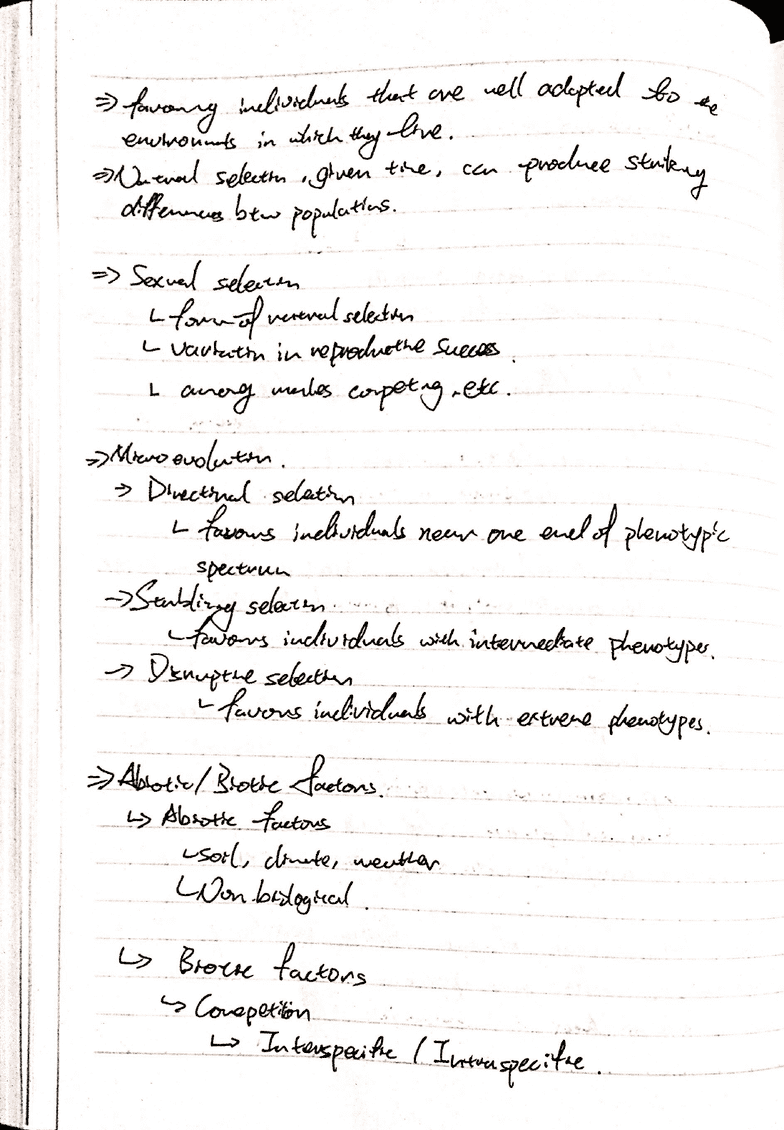 ⇒ favouring individuals that are well adapted to the
environments in which they live.
⇒ Natural selection, given time, can produce striking
differences btw populations.
⇒ Sexual selection
↳ form of natural selection
↳ variation in reproductive success.
↳ among males competing, etc.
⇒ Microevolution.
→ Directional selection
↳ favours individuals near one end of phenotypic
spectrum
→ Stablizing selection
↳ favours individuals with intermediate phenotypes.
→ Disruptive selection
↳ favours individuals with extreme phenotypes.
⇒ Abiotic/Biotic factors.
↳ Abiotic factors
↳ soil, climate, weather
↳ Non biological.
↳ Biotic factors
↳ Competition
↳ Interspecific / Intraspecific.